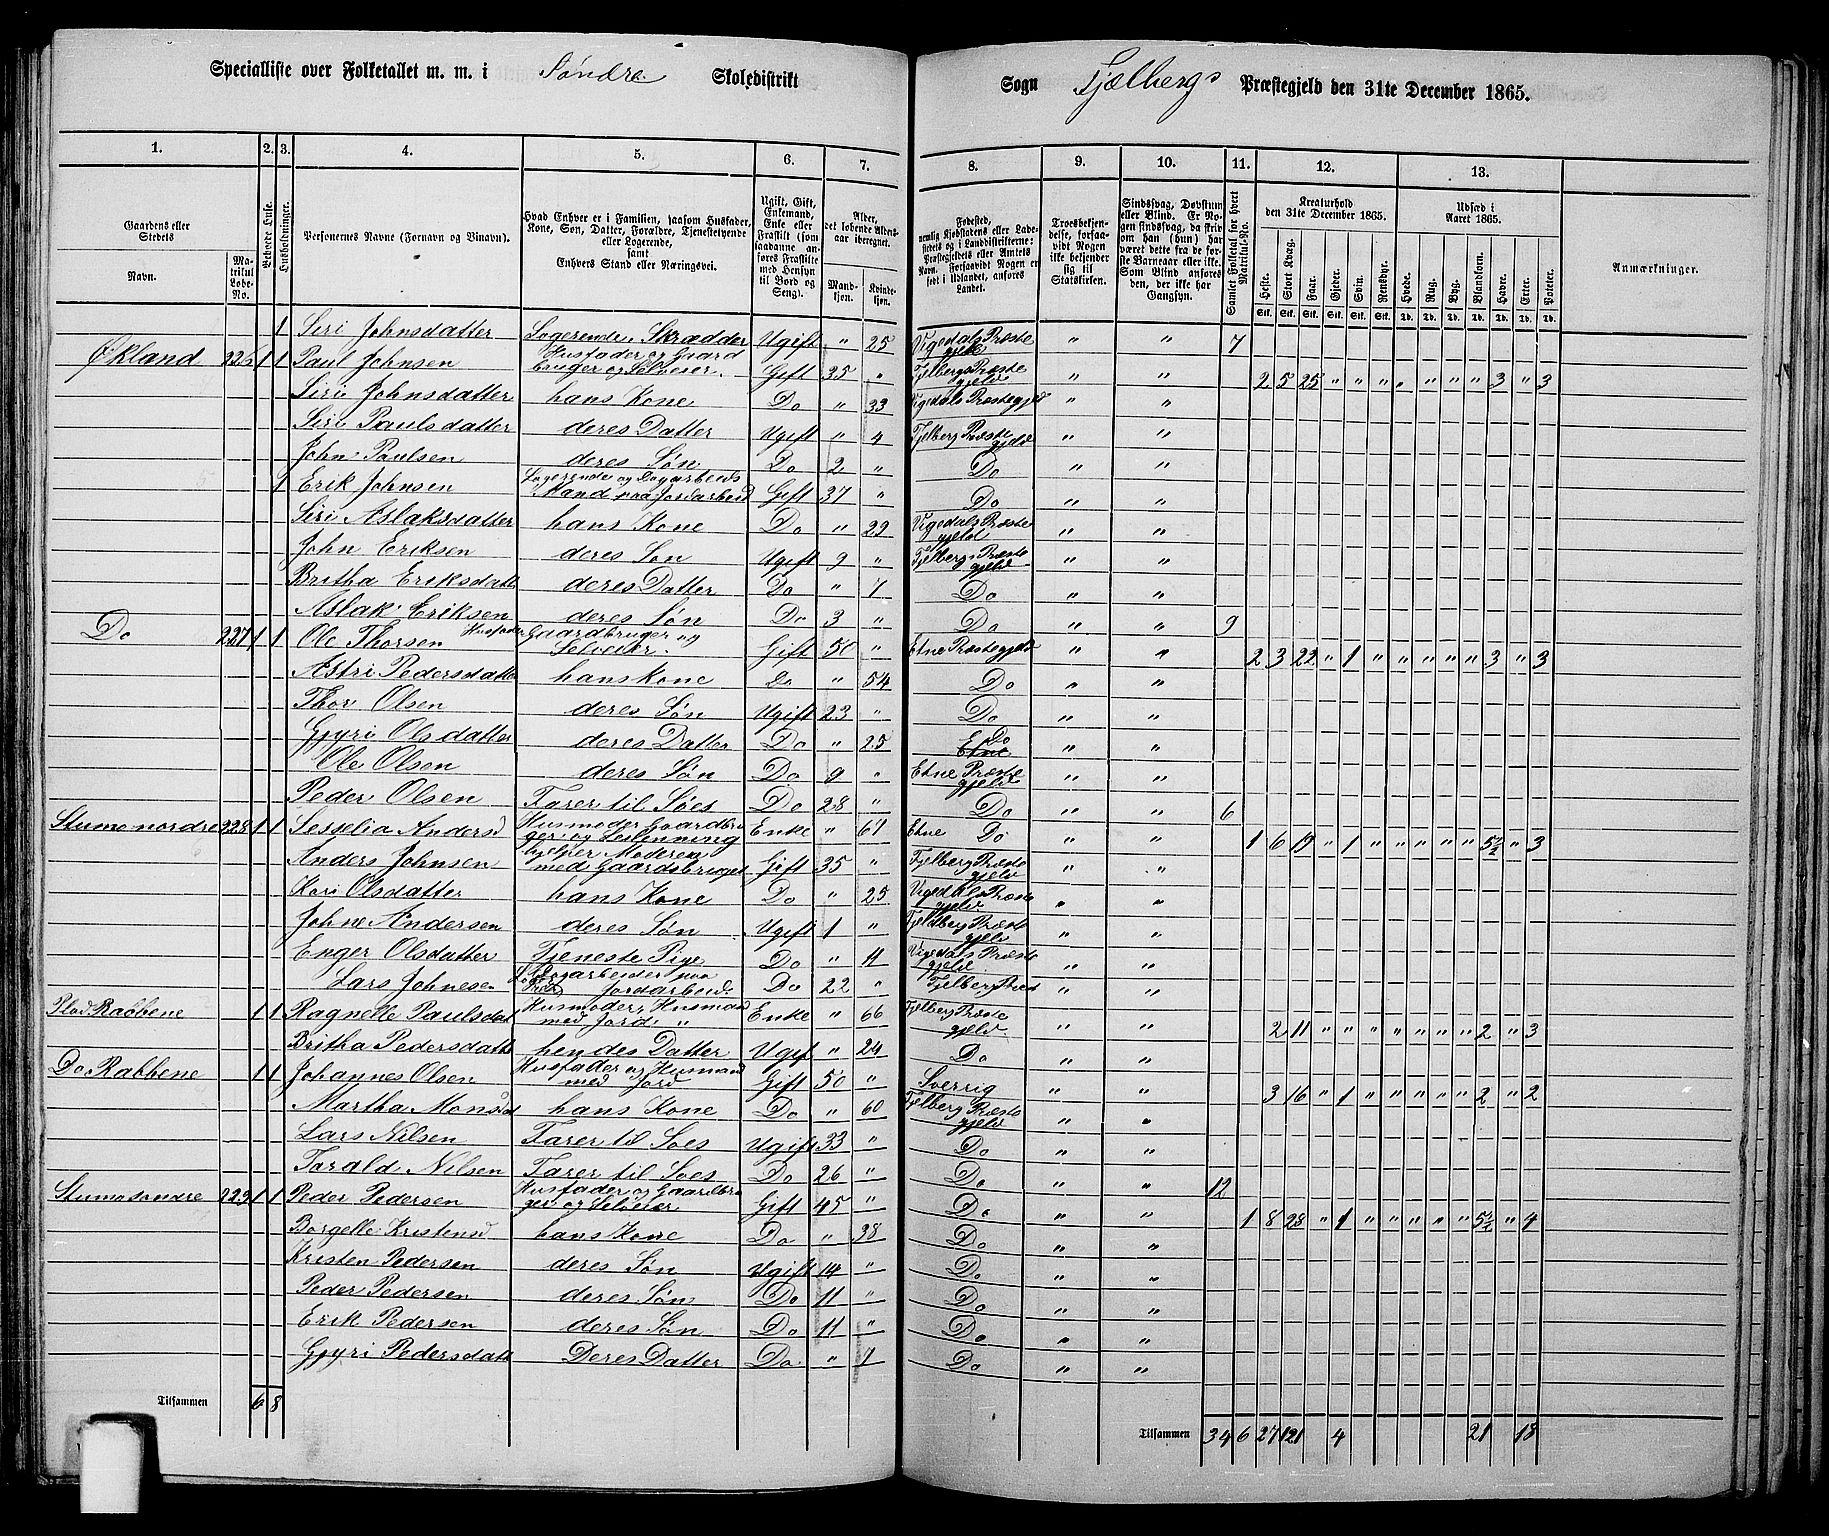 Specialliste over Folketallet m. m. i Søndre Skoledistrikt
Sogn Fjælbergs Præstegjeld den 31te December 1865.
1. 2. 3. 4. 5. 6. 7. 8. 9. 10. 11. 12. 13.
Gaardens eller Stedets
Navn. Matrikul Løbe-No.
Beboede Huse.
Husholdninger.
Personernes Navne (Fornavn og Tilnavn).
Hvad Enhver er i Familien, saasom Husfader, Kone, Søn, Datter, Forældre, Tjenestetyende eller Logerende, samt Enhvers Stand eller Næringsvei.
Ugift, Gift, Enkemand, Enke eller Fraskilt
Alder, det løbende Aldersaar iberegnet.
Mandkjøn. Kvindekjøn.
Fødested,
Troesbekjendelse, forsaavidt Nogen ikke bekjender sig til Statskirken.
Sindssvag, Døvstum eller Blind.
Samlet Folketal for hvert Matrikul-No.
Kreaturhold den 31te December 1865.
Heste. Stort Kvæg. Faar. Gjeder. Svin. Rensdyr.
Udsæd i Aaret 1865.
Hvede. Rug. Byg. Blandkorn. Havre. Erter. Poteter.
Anmærkninger.
1 Siri Johnsdatter Logerende, Skrædder Ugift " 25 Vigedals Præstegjeld " " 7
Økland 226 1 1 Paul Johnsen Husfader og Gaardbruger og Selveier. Gift 35 " Fjelbergs Præstegjeld " " 2 5 25 " " " " " " " 3 " 3
Siri Johnsdatter hans Kone Do " 33 Vigedals Præstegjeld " "
Siri Paulsdatter deres Datter Ugift " 4 Fjelberg Præstegjeld " "
John Paulsen deres Søn Do 2 " Do " "
1 Erik Johnsen Logerende og Dagarbeids Mand paa Jordarbeid Gift 37 " Do " "
Siri Aslaksdatter hans Kone Do " 29 Vigedals Præstegjeld " "
John Eriksen deres Søn Ugift 9 " Fjelbergs Præstegjeld " "
Britha Eriksdatte deres Datter Do " 7 Do " "
Aslak Eriksen deres Søn Do 3 " Do " " 9
Do 227 1 1 Ole Thorsen Husfader Gaardbruger og Selveier. Gift 50 " Etne Præstegjeld " " 2 3 22 " 1 " " " " " 3 " 3
Astri Pedersdatte hans Kone Do " 54 Do " "
Thor Olsen deres Søn Ugift 23 " Do " "
Gjyri Olsdatter deres Datter Do " 25 Do " "
Ole Olsen deres Søn Do 9 " Etne Præstegjeld " "
Peder Olsen Farer til Søes Do 28 " Do " " 6
Stumo nordre 228 1 1 Sesselia Andersd Husmoder, Gaardbruger og Enke " 61 Etne Do " " 1 6 19 " 1 " " " " " 5½ " 3
Anders Johnsen hjelper Moderen med Gaardsbruget Gift 35 " Fjelberg Præstegjeld " "
Kari Olsdatter hans Kone Do " 25 Vigedals Præstegjeld " "
John Andersen deres Søn Ugift 1 " Fjelberg Præstegjeld " "
Enger Olsdatter Tjeneste Pige Do " 11 Vigedals Præstegjeld " "
Lars Johnesen Dagarbeider paa Jordarbeide Do 22 " Fjelberg Præst " "
Plad. Rabbene 1 1 Ragnelle Paulsdat Husmoder, Husmand med Jord " Enke " 66 Fjelberg Præstegjeld " " 2 11 " " " " " " " 2 " 3
Britha Pedersdatte hendes Datter Ugif " 24 Do " "
Do Rabbene 1 1 Johannes Olsen Husfader og Husmand med Jord Gift 50 " Sverrig " " 3 16 " 1 " " " " " 2 " 2
Martha Monsdat hans Kone Do " 60 Fjelberg Præstegjeld " "
Lars Nilsen Farer til Søes Ugift 33 " Do " "
Torald Nilsen Farer til Søes Do 26 " Do " " 12
Stumo søndre 229 1 1 Peder Pedersen Husfader og Gaardbruger og Selveier Gift 45 " Do " " 1 8 28 " 1 " " " " " 5½ " 4
Borgelle Kristensd hans Kone Do " 38 Do " "
Kristen Pedersen deres Søn Ugift 14 " Do " "
Peder Pedersen deres Søn Do 11 " Do " "
Erik Pedersen deres Søn Do 11 " Do " "
Gjyri Pedersdatt Deres Datter Do " 7 Do " "
Tilsammen 6 8
Tilsammen 34 6 27 121 4 21 18